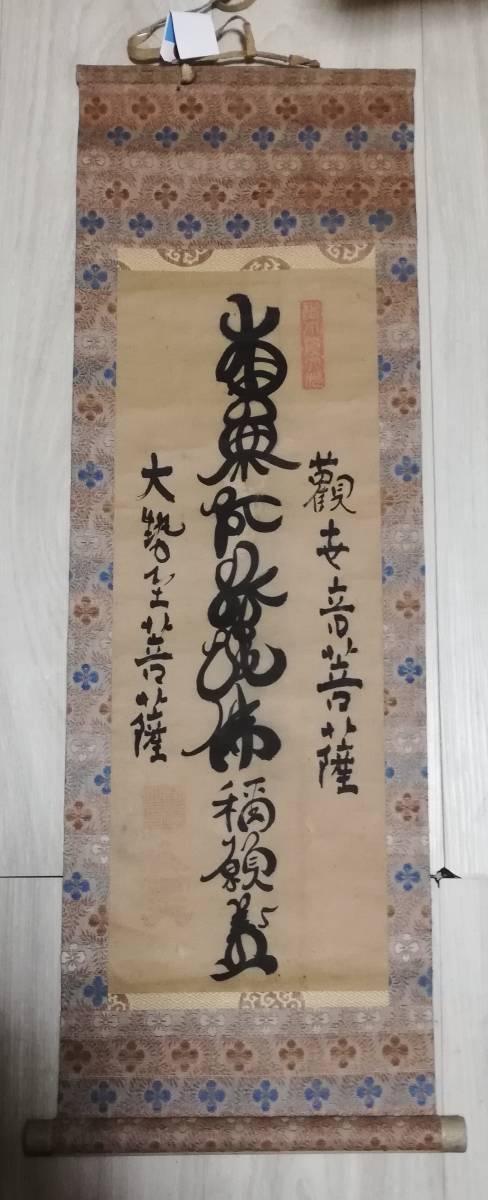 觀世音菩薩
南無阿弥陀佛 稱願
大勢至菩薩